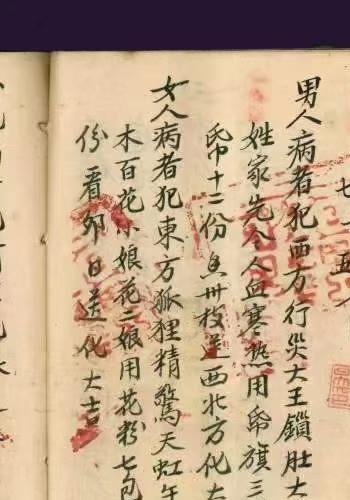 男人病者犯西方行災大王鎖肚大
姓家先令人血寒熱用帋旗三
帋十二份卅枚送西北方化大
女人病者犯東方狐狸精驚天虹午
木百花小娘花二娘用花粉七包
份看卯日送化大吉